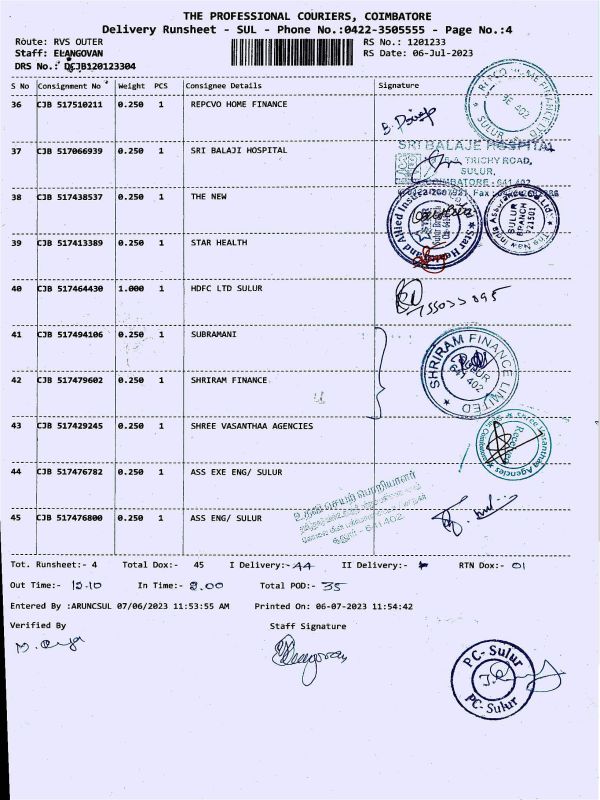 THE PROFESSIONAL COURIERS, COIMBATORE
Delivery Runsheet - SUL - Phone No.:0422-3505555 - Page No.:4
Route: RVS OUTER RS No.: 1201233
Staff: ELANGOVAN RS Date: 06-Jul-2023
DRS No.: DCJB120123304
S No Consignment No Weight PCS Consignee Details Signature
36 CJB 517510211 0.250 1 REPCVO HOME FINANCE
REPCO HOME FINANCE LTD
SULUR
37 CJB 517066939 0.250 1 SRI BALAJI HOSPITAL
SRI BALAJE HOSPITAL
TRICHY ROAD,
SULUR,
COIMBATORE - 641 402
38 CJB 517438537 0.250 1 THE NEW
The New India Assurance Co. Ltd.
SULUR
BRANCH
721501
39 CJB 517413389 0.250 1 STAR HEALTH
Star Health and Allied Insu
40 CJB 517464430 1.000 1 HDFC LTD SULUR
41 CJB 517494106 0.250 1 SUBRAMANI
42 CJB 517479602 0.250 1 SHRIRAM FINANCE
SHRIRAM FINANCE LIMITED
641 402
43 CJB 517429245 0.250 1 SHREE VASANTHAA AGENCIES
Shree Vasanthaa Agencies
Received
44 CJB 517476782 0.250 1 ASS EXE ENG/ SULUR
உதவி செயற் பொறியாளர்
சூலூர் - 641 402
45 CJB 517476800 0.250 1 ASS ENG/ SULUR
Tot. Runsheet:- 4 Total Dox:- 45 I Delivery:- 44 II Delivery:- RTN Dox:- 01
Out Time:- 12-10 In Time:- 2.00 Total POD:- 35
Entered By :ARUNCSUL 07/06/2023 11:53:55 AM Printed On: 06-07-2023 11:54:42
Verified By Staff Signature
PC- Sulur
PC- Sulur